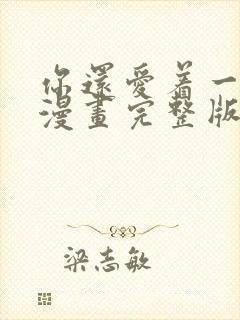 你還愛着一
漫畫完整版
梁志敏